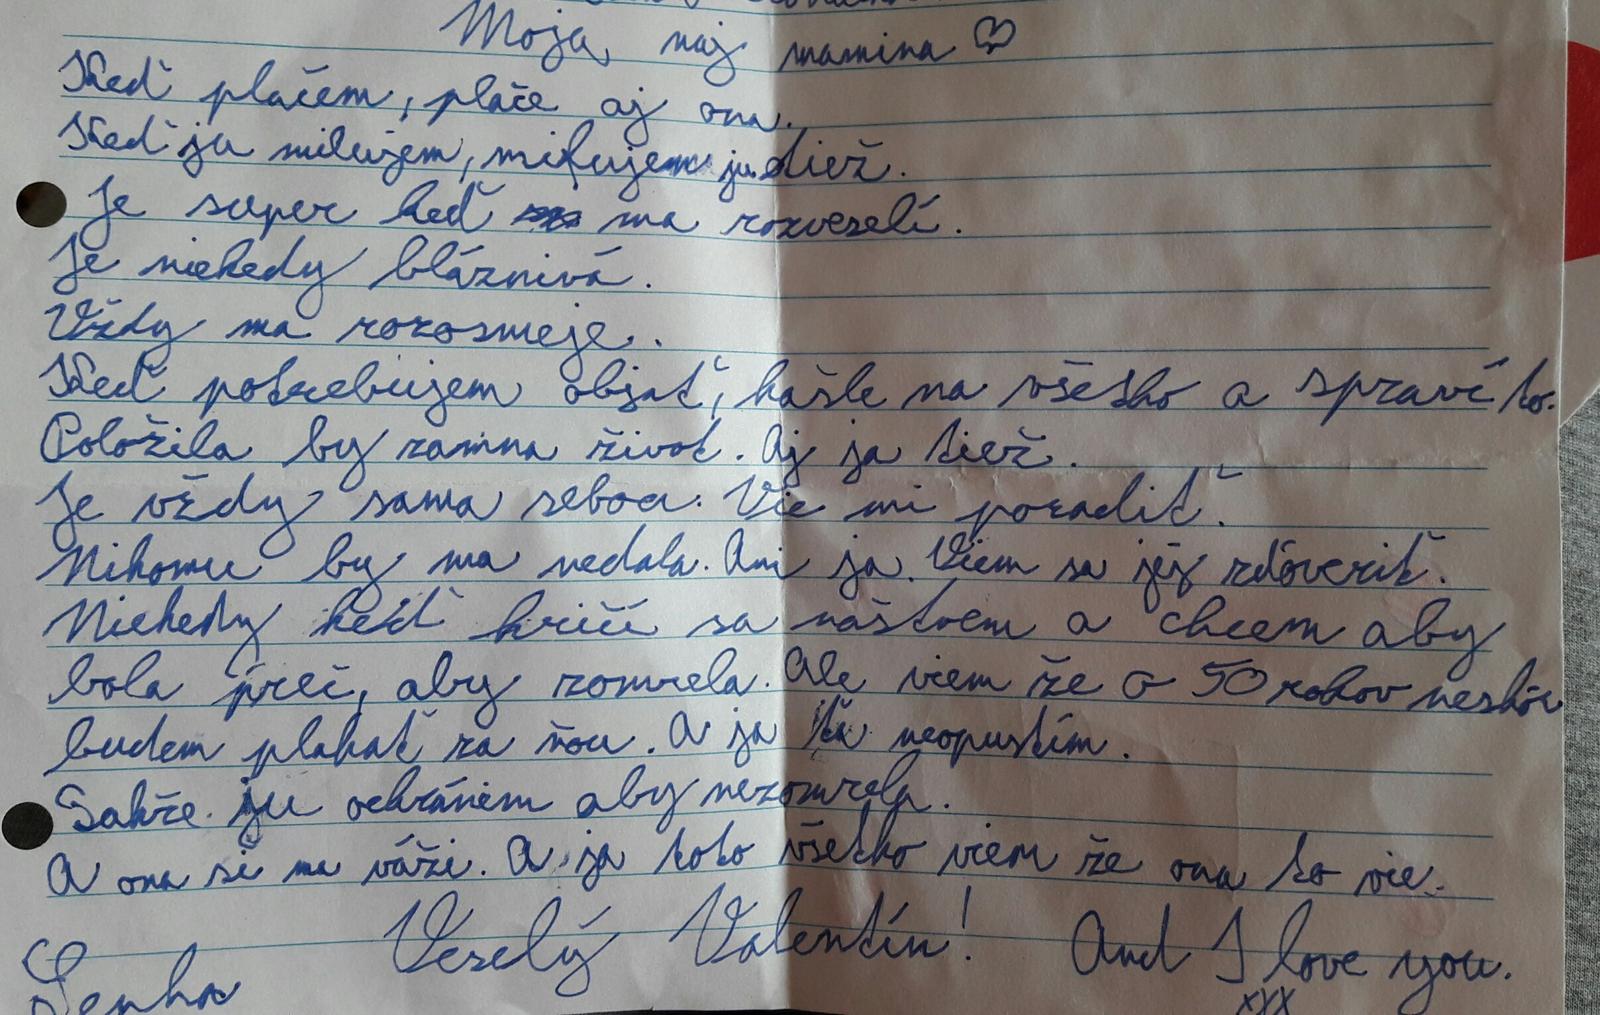 Moja naj mamina
Keď plačem, plače aj ona.
Keď ju milujem, milujem ju tiež.
Je super keď ma rozveselí.
Je niekedy bláznivá.
Vždy ma rozosmeje.
Keď potrebujem objať, kašle na všetko a spraví to.
Položila by zamna život. Aj ja tiež.
Je vždy sama sebou. Vie mi poradiť.
Nikomu by ma nedala. Ani ja. Viem sa jej zdôveriť.
Niekedy keď kričí sa naštvem a chcem aby
bola preč, aby zomrela. Ale viem že o 50 rokov neskôr
budem plakať za ňou. A ja ťa neopustím.
Takže ju ochránim aby nezomrela.
A ona si ma váži. A ja toto všetko viem že ona to vie.
Veselý Valentín! And I love you.
Lenka xxx